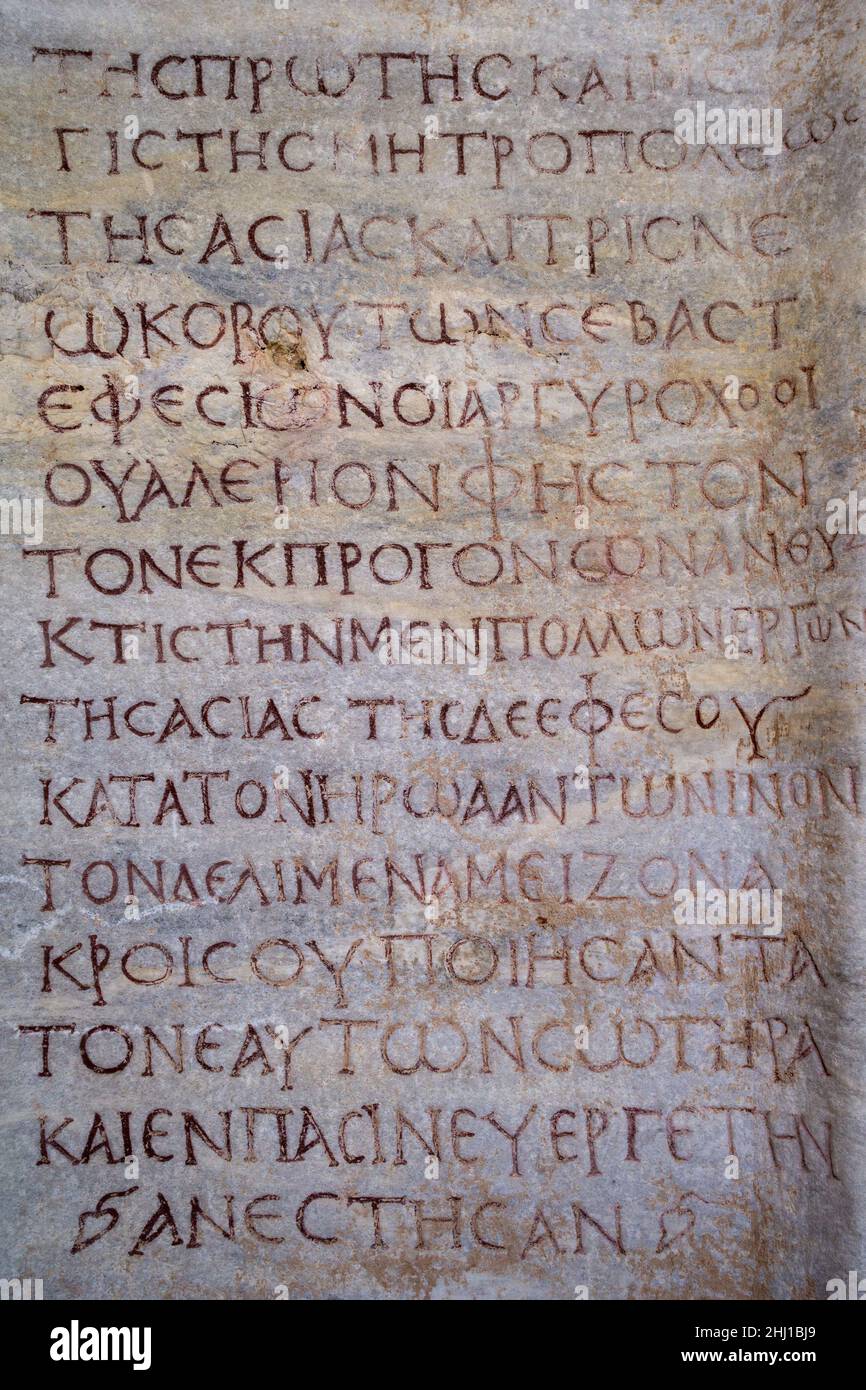 ΤΗϹΠΡΩΤΗϹΚΑΙΜΕ
ΓΙϹΤΗϹΜΗΤΡΟΠΟΛΕΩϹ
ΤΗϹΑϹΙΑϹΚΑΙΤΡΙϹΝΕ
ΩΚΟΡΟΥΤΩΝϹΕΒΑϹΤ
ΕΦΕϹΙΩΝΟΙΑΡΓΥΡΟΧΟΟΙ
ΟΥΑΛΕΡΙΟΝΦΗϹΤΟΝ
ΤΟΝΕΚΠΡΟΓΟΝΩΝΑΝΘΥ
ΚΤΙϹΤΗΝΜΕΝΠΟΛΛΩΝΕΡΓΩΚ
ΤΗϹΑϹΙΑϹ ΤΗϹΔΕΕΦΕϹΟΥ
ΚΑΤΑΤΟΝΗΡΩΑΑΝΤΩΝΙΝΟΝ
ΤΟΝΔΕΛΙΜΕΝΑΜΕΙΖΟΝΑ
ΚΡΟΙϹΟΥΠΟΙΗϹΑΝΤΑ
ΤΟΝΕΑΥΤΩΝϹΩΤΗΡΑ
ΚΑΙΕΝΠΑϹΙΝΕΥΕΡΓΕΤΗΝ
ΑΝΕϹΤΗϹΑΝ
alamy
Image ID: 2HJ1BJ9
www.alamy.com